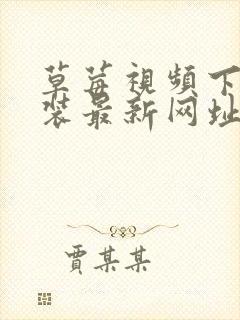 草莓視頻下
装最新网址
賈某某